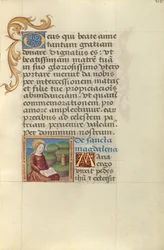 Deus qui beate anne
tantam gratiam
donare dignatus es: ut
beatissimam matrem tua
in suo gloriosissimo utero
portare meruit da nobis
per intercessionem matris
et filie tue propiciacionis
abundanciam ut quarum
commemorationem pio
amore amplectimur earum
precibus ad celestem pa
triam pervenire valeam
Per dominum nostrum
De sancta
magdalena
Maria
unxit pedes